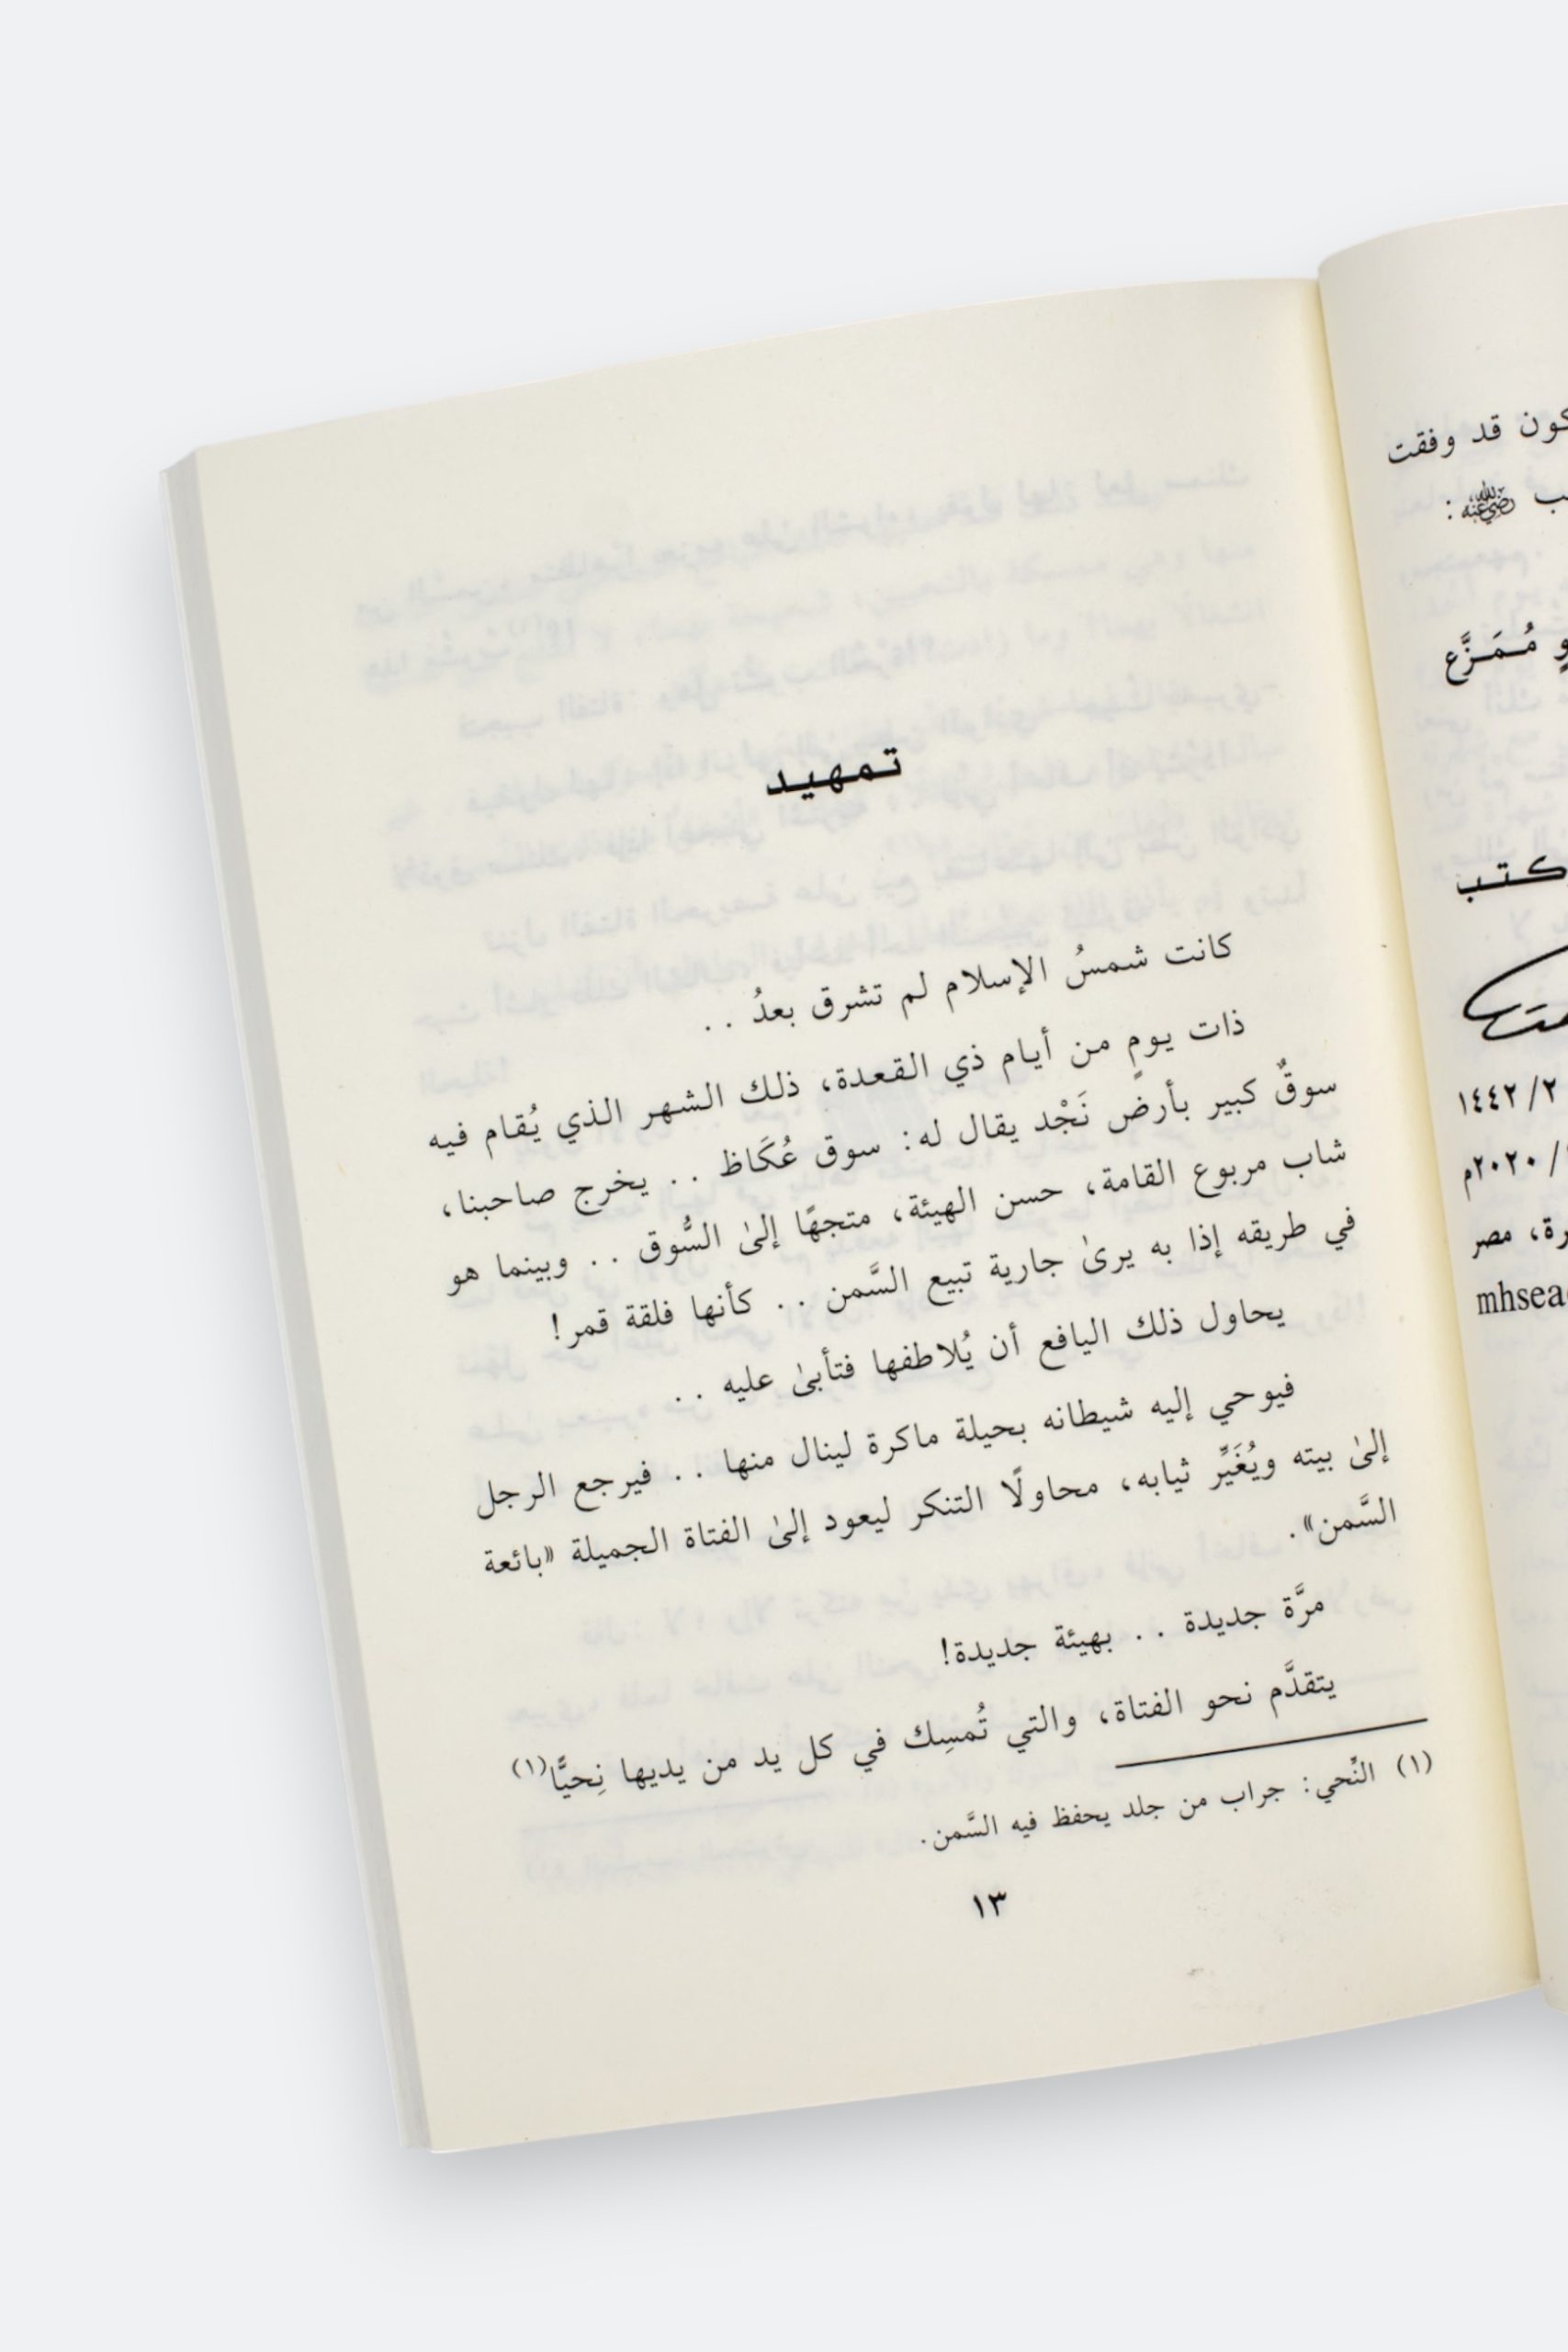 كون قد وفقت
ﷺ:
مُمَزَّع
كتب
١٤٤٢/٢
٢٠٢٠م
مصر
mhsea
تمهيد
كانت شمسُ الإسلام لم تشرق بعدُ . .
ذات يومٍ من أيام ذي القعدة، ذلك الشهر الذي يُقام فيه
سوقٌ كبير بأرض نَجْد يقال له: سوق عُكَاظ . . يخرج صاحبنا،
شاب مربوع القامة، حسن الهيئة، متجهًا إلىٰ السُّوق . . وبينما هو
في طريقه إذا به يرىٰ جارية تبيع السَّمن . . كأنها فلقة قمر!
يحاول ذلك اليافع أن يُلاطفها فتأبىٰ عليه . .
فيوحي إليه شيطانه بحيلة ماكرة لينال منها . . فيرجع الرجل
إلىٰ بيته ويُغَيِّر ثيابه، محاولًا التنكر ليعود إلىٰ الفتاة الجميلة «بائعة
السَّمن».
مرَّة جديدة . . بهيئة جديدة!
يتقدَّم نحو الفتاة، والتي تُمسِك في كل يد من يديها نِحيًّا(١)
(١) النِّحي: جراب من جلد يحفظ فيه السَّمن.
١٣